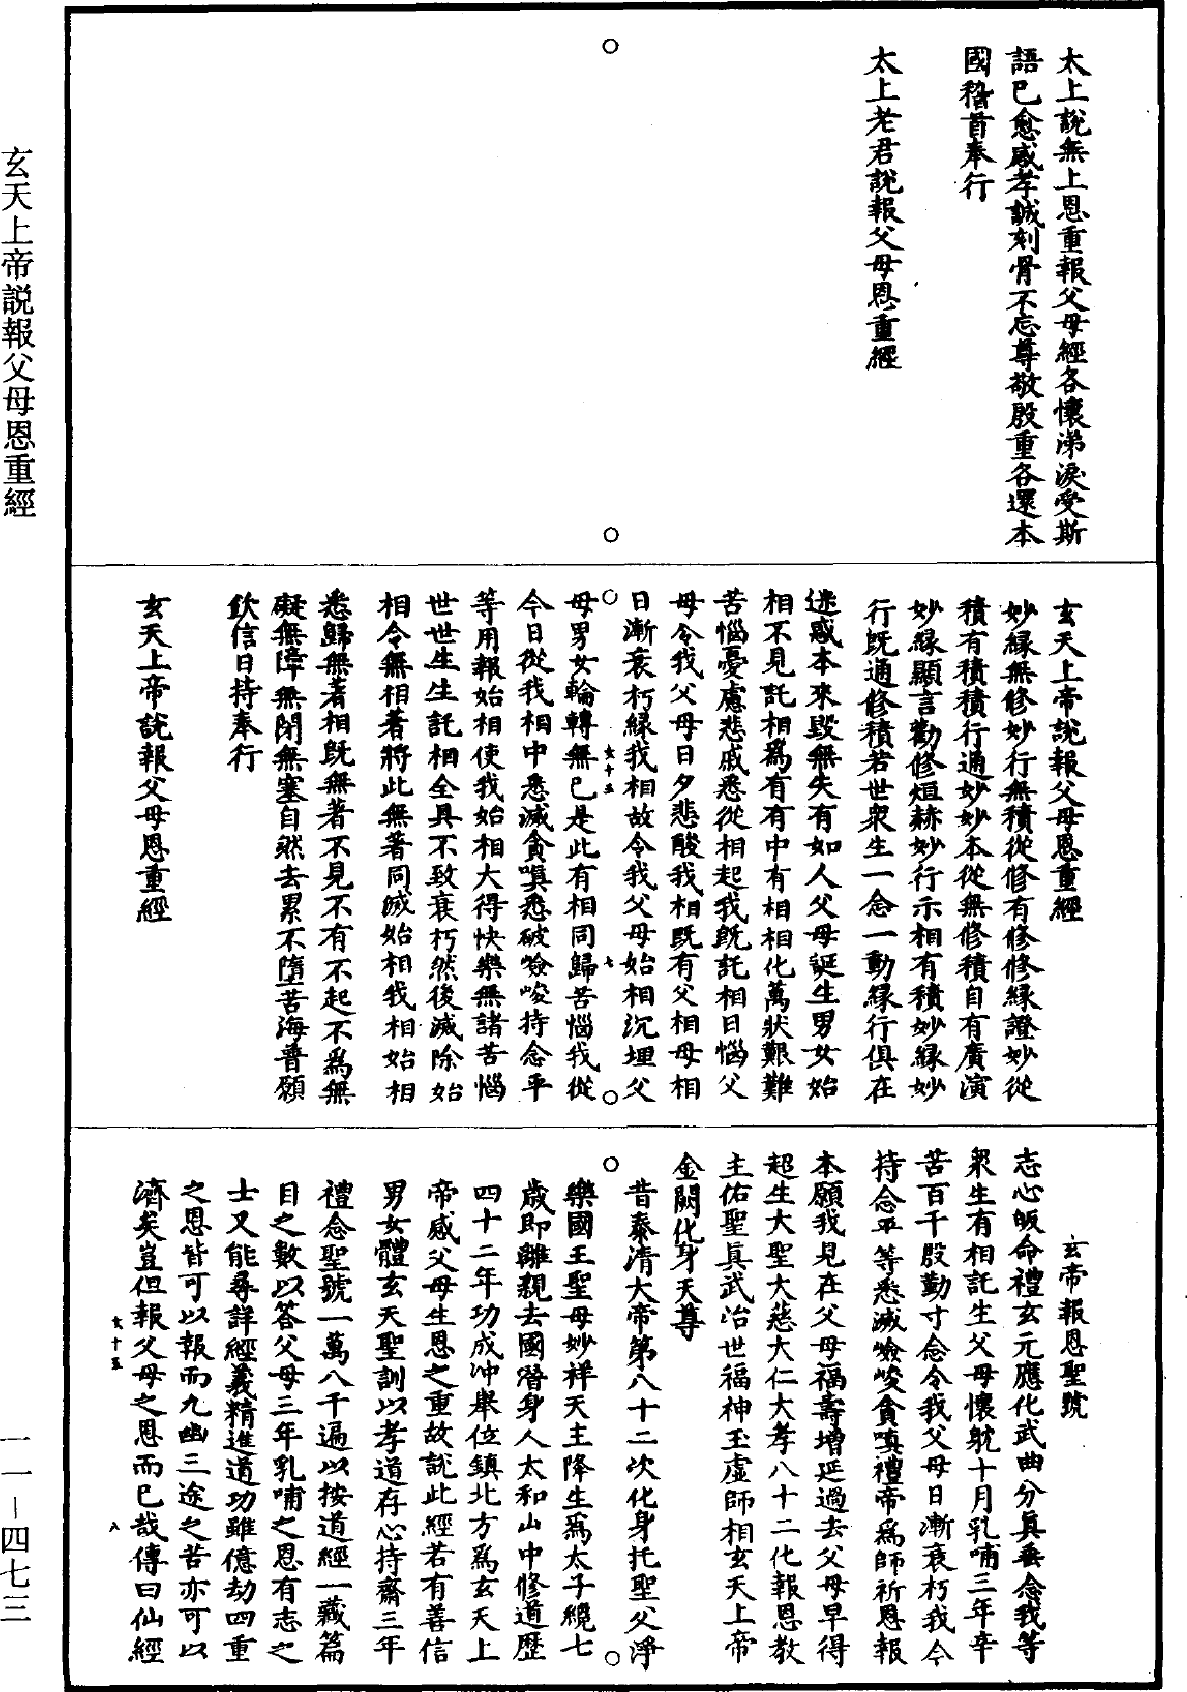 太上說無上恩重報父母經各懷涕淚受斯
語已愈感孝誠刻骨不忘尊敬殷重各還本
國稽首奉行
太上老君說報父母恩重經
玄天上帝說報父母恩重經
妙緣無修妙行無積從修有修修緣證妙從
積有積積行通妙妙本從無修積自有廣演
妙緣顯言勸修烜赫妙行示相有積妙緣妙
行既通修積若世眾生一念一動緣行俱在
迷惑本來毀無失有如人父母誕生男女始
相不見託相爲有有中有相相化萬狀艱難
苦惱憂慮悲戚悉從相起我既託相日惱父
母令我父母日夕悲酸我相既有父相母相
日漸衰朽緣我相故令我父母始相沉埋父
玄十五 七
母男女輪轉無已是此有相同歸苦惱我從
今日從我相中悉滅貪嗔悉破嶮峻持念平
等用報始相使我始相大得快樂無諸苦惱
世世生生託相全具不致衰朽然後滅除始
相令無相著將此無著同滅始相我相始相
悉歸無著相既無著不見不有不起不爲無
礙無障無閉無塞自然去累不墮苦海普願
欽信日持奉行
玄天上帝說報父母恩重經
玄帝報恩聖號
志心皈命禮玄元應化武曲分眞垂念我等
眾生有相託生父母懷躭十月乳哺三年辛
苦百千殷勤寸念令我父母日漸衰朽我今
持念平等悉滅嶮峻貪嗔禮帝爲師祈恩報
本願我見在父母福壽增延過去父母早得
超生大聖大慈大仁大孝八十二化報恩教
主佑聖眞武治世福神玉虛師相玄天上帝
金闕化身天尊
昔泰清大帝第八十二次化身托聖父淨
樂國王聖母妙祥天主降生爲太子纔七
歲即離親去國潛身人太和山中修道歷
四十二年功成沖舉位鎮北方爲玄天上
帝感父母生恩之重故說此經若有善信
男女體玄天聖訓以孝道存心持齋三年
禮念聖號一萬八千遍以按道經一藏篇
目之數以答父母三年乳哺之恩有志之
士又能尋詳經義精進道功雖億劫四重
之恩皆可以報而九幽三途之苦亦可以
濟矣豈但報父母之恩而已哉傳曰仙經
玄十五 八
玄天上帝説報父母恩重經
一一—四七三